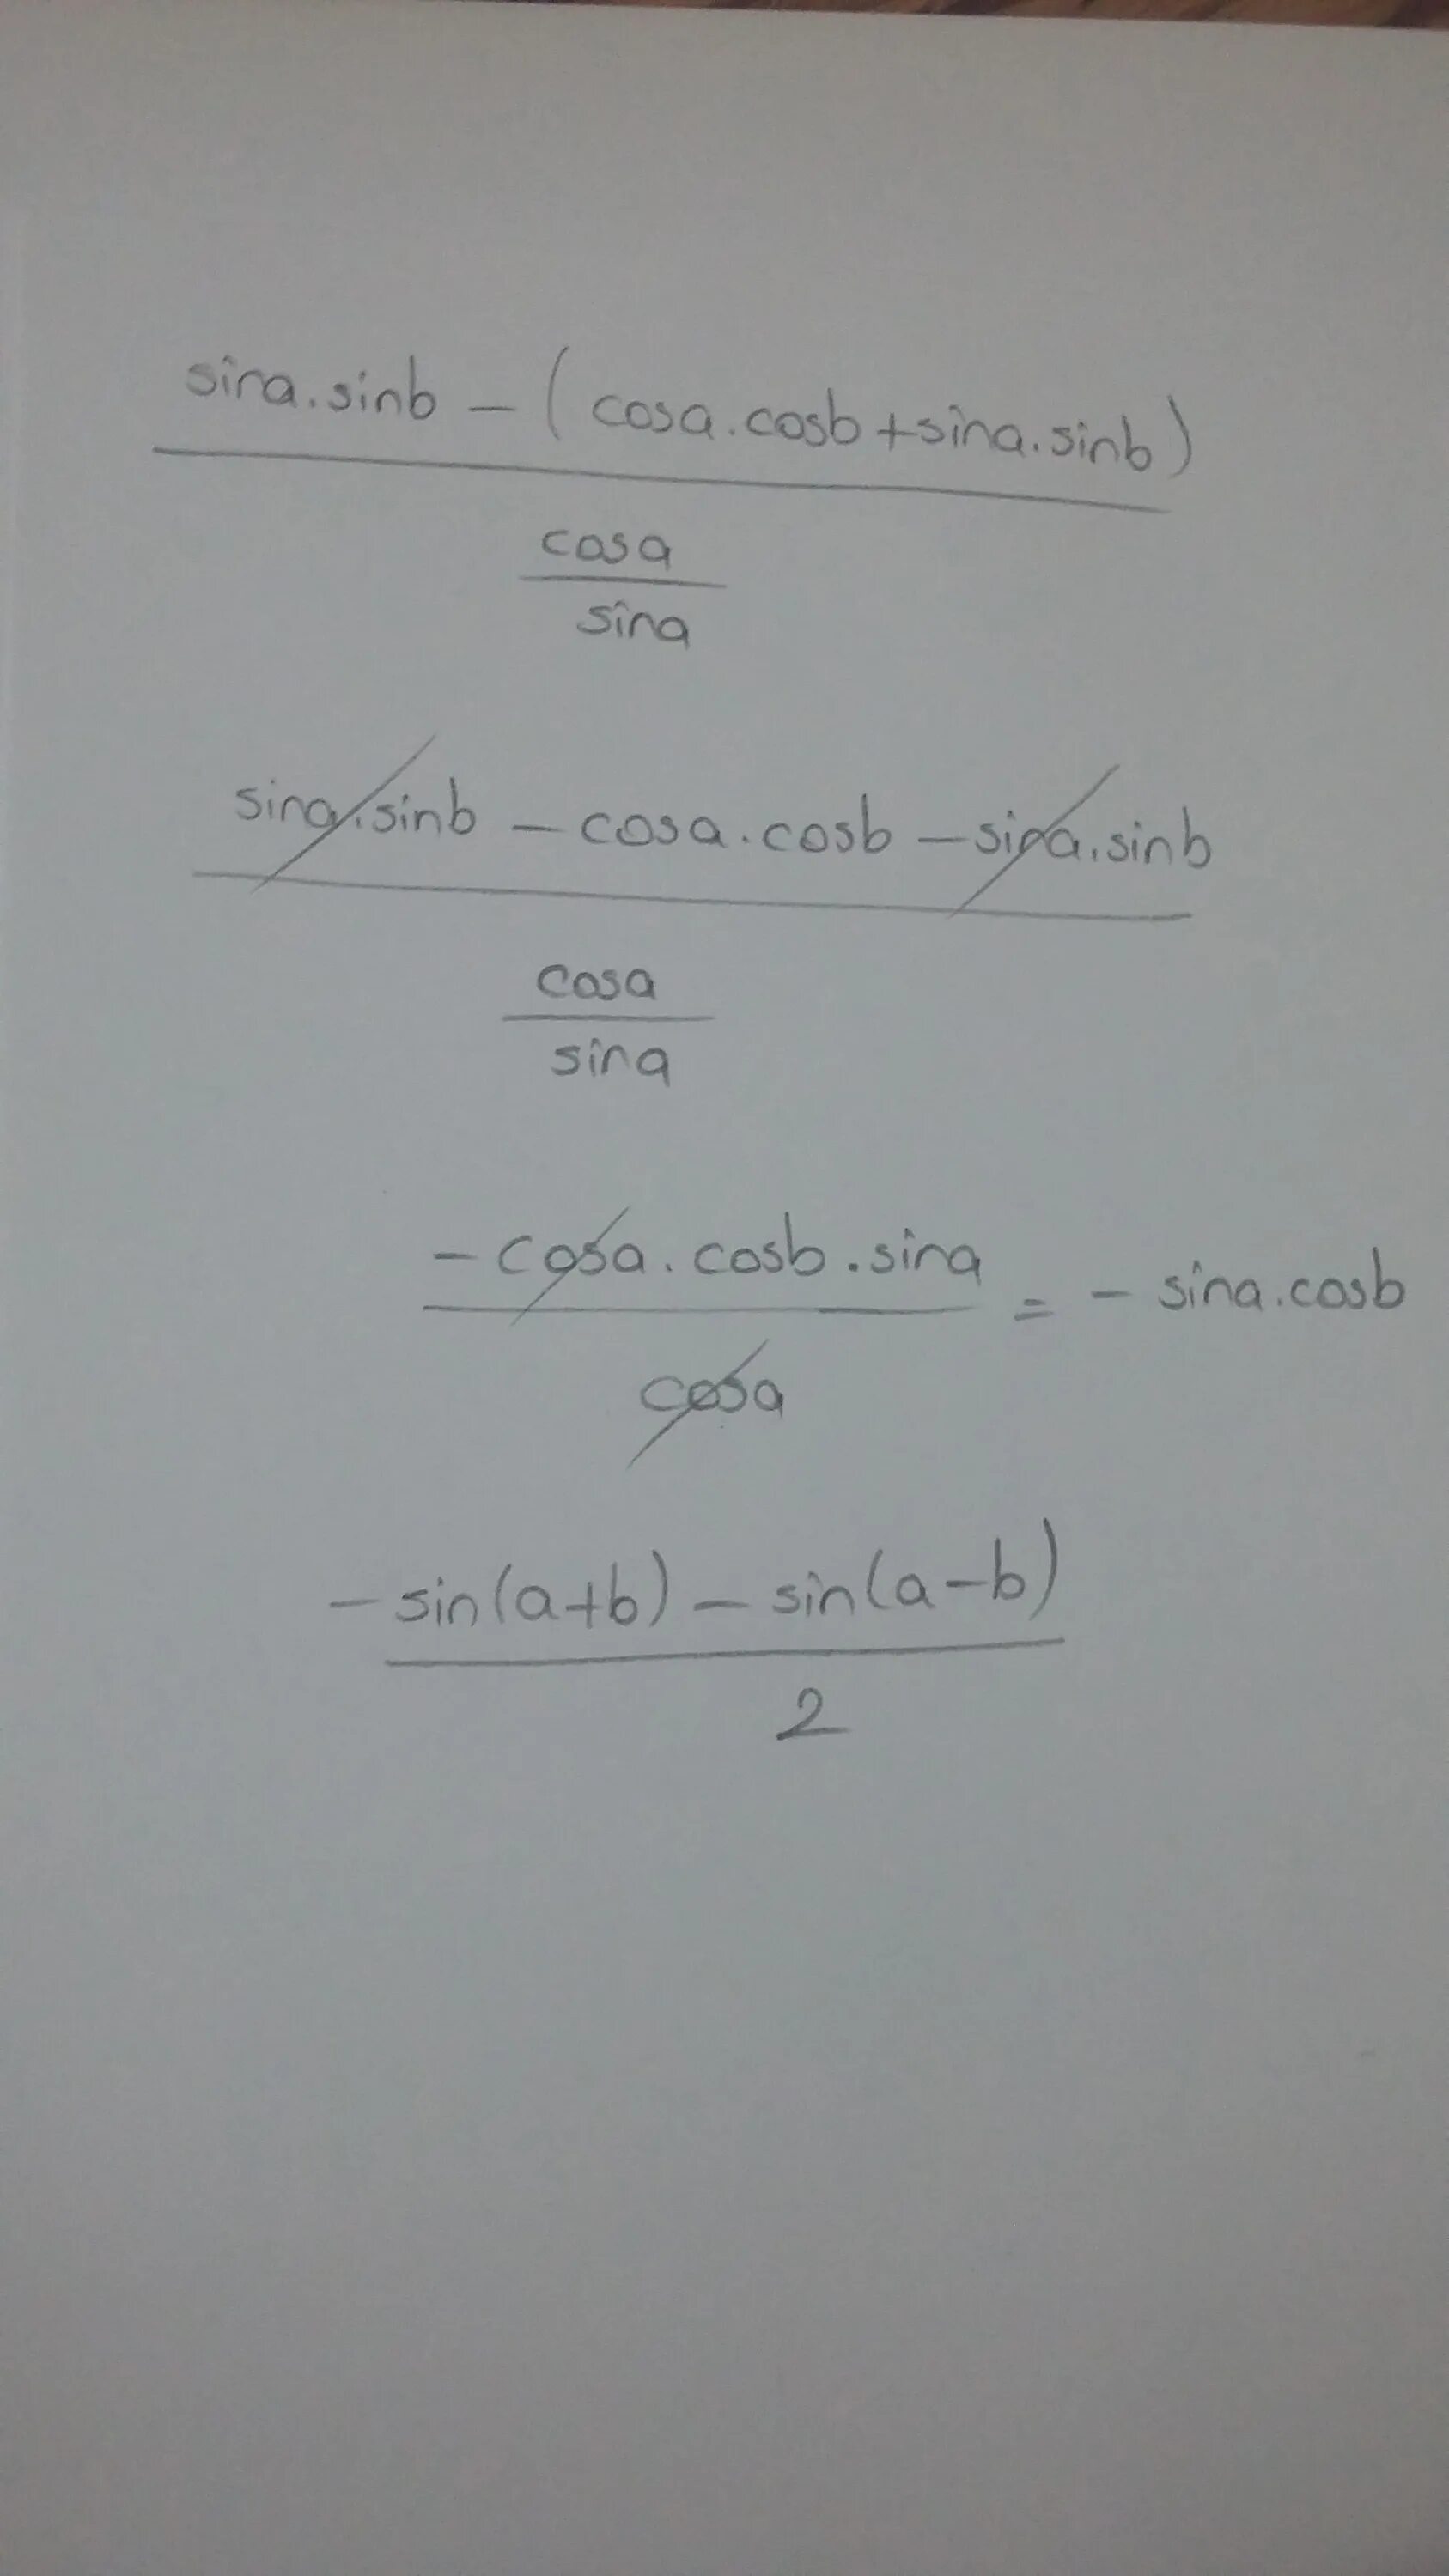 sina.sinb - (cosa.cosb+sina.sinb)
cosa
sina
sina.sinb - cosa.cosb - sina.sinb
cosa
sina
-cosa.cosb.sina = - sina.cosb
cosa
-sin(a+b) - sin(a-b)
2